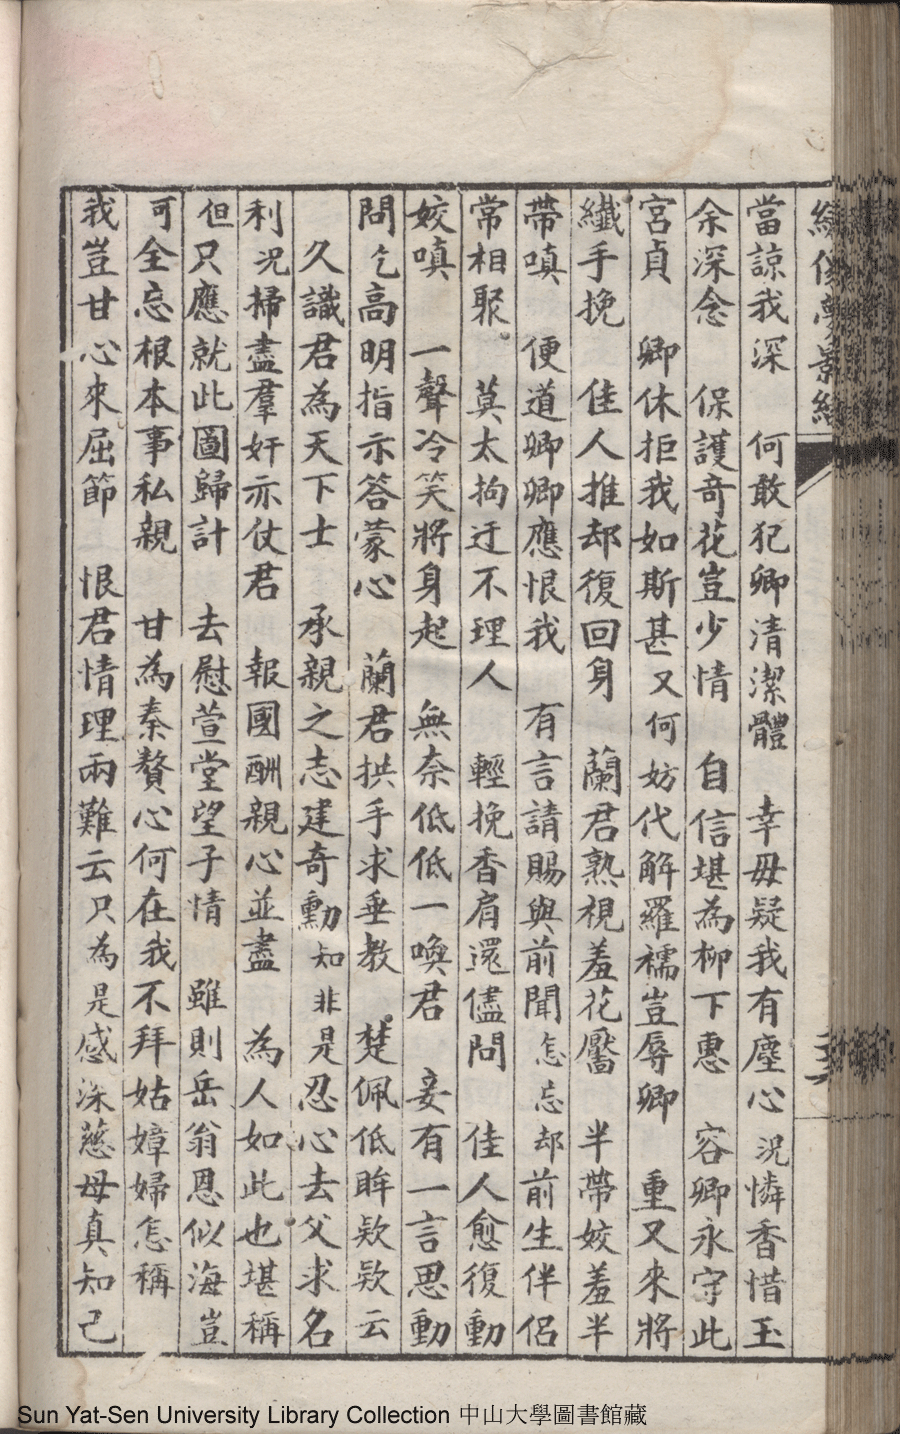 當諒我深　何敢犯卿清潔體　幸毋疑我有塵心況憐香惜玉
余深念　保護奇花豈少情　自信堪為柳下惠　容卿永守此
宮貞　卿休拒我如斯甚又何妨代解羅襦豈辱卿　重又來將
纖手挽　佳人推却復回身　蘭君熟視羞花靨　半帶姣羞半
帶嗔　便道卿卿應恨我　有言請賜與前聞怎忘却前生伴侶
常相聚　莫太拘迂不理人　輕挽香肩還儘問　佳人愈復動
姣嗔　一聲冷笑將身起　無奈低低一喚君　妾有一言思動
問乞高明指示答蒙心　蘭君拱手求垂教　楚佩低眸欵欵云
久識君為天下士　承親之志建奇勳知非是忍心去父求名
利況掃盡羣奸亦仗君　報國酬親心並盡　為人如此也堪稱
但只應就此圖歸計　去慰萱堂望子情　雖則岳翁恩似海豈
可全忘根本事私親　甘為秦贅心何在我不拜姑嫜婦怎稱
我豈甘心來屈節　恨君情理兩難云只為是感深慈母真知己
Sun Yat-Sen University Library Collection 中山大學圖書館藏